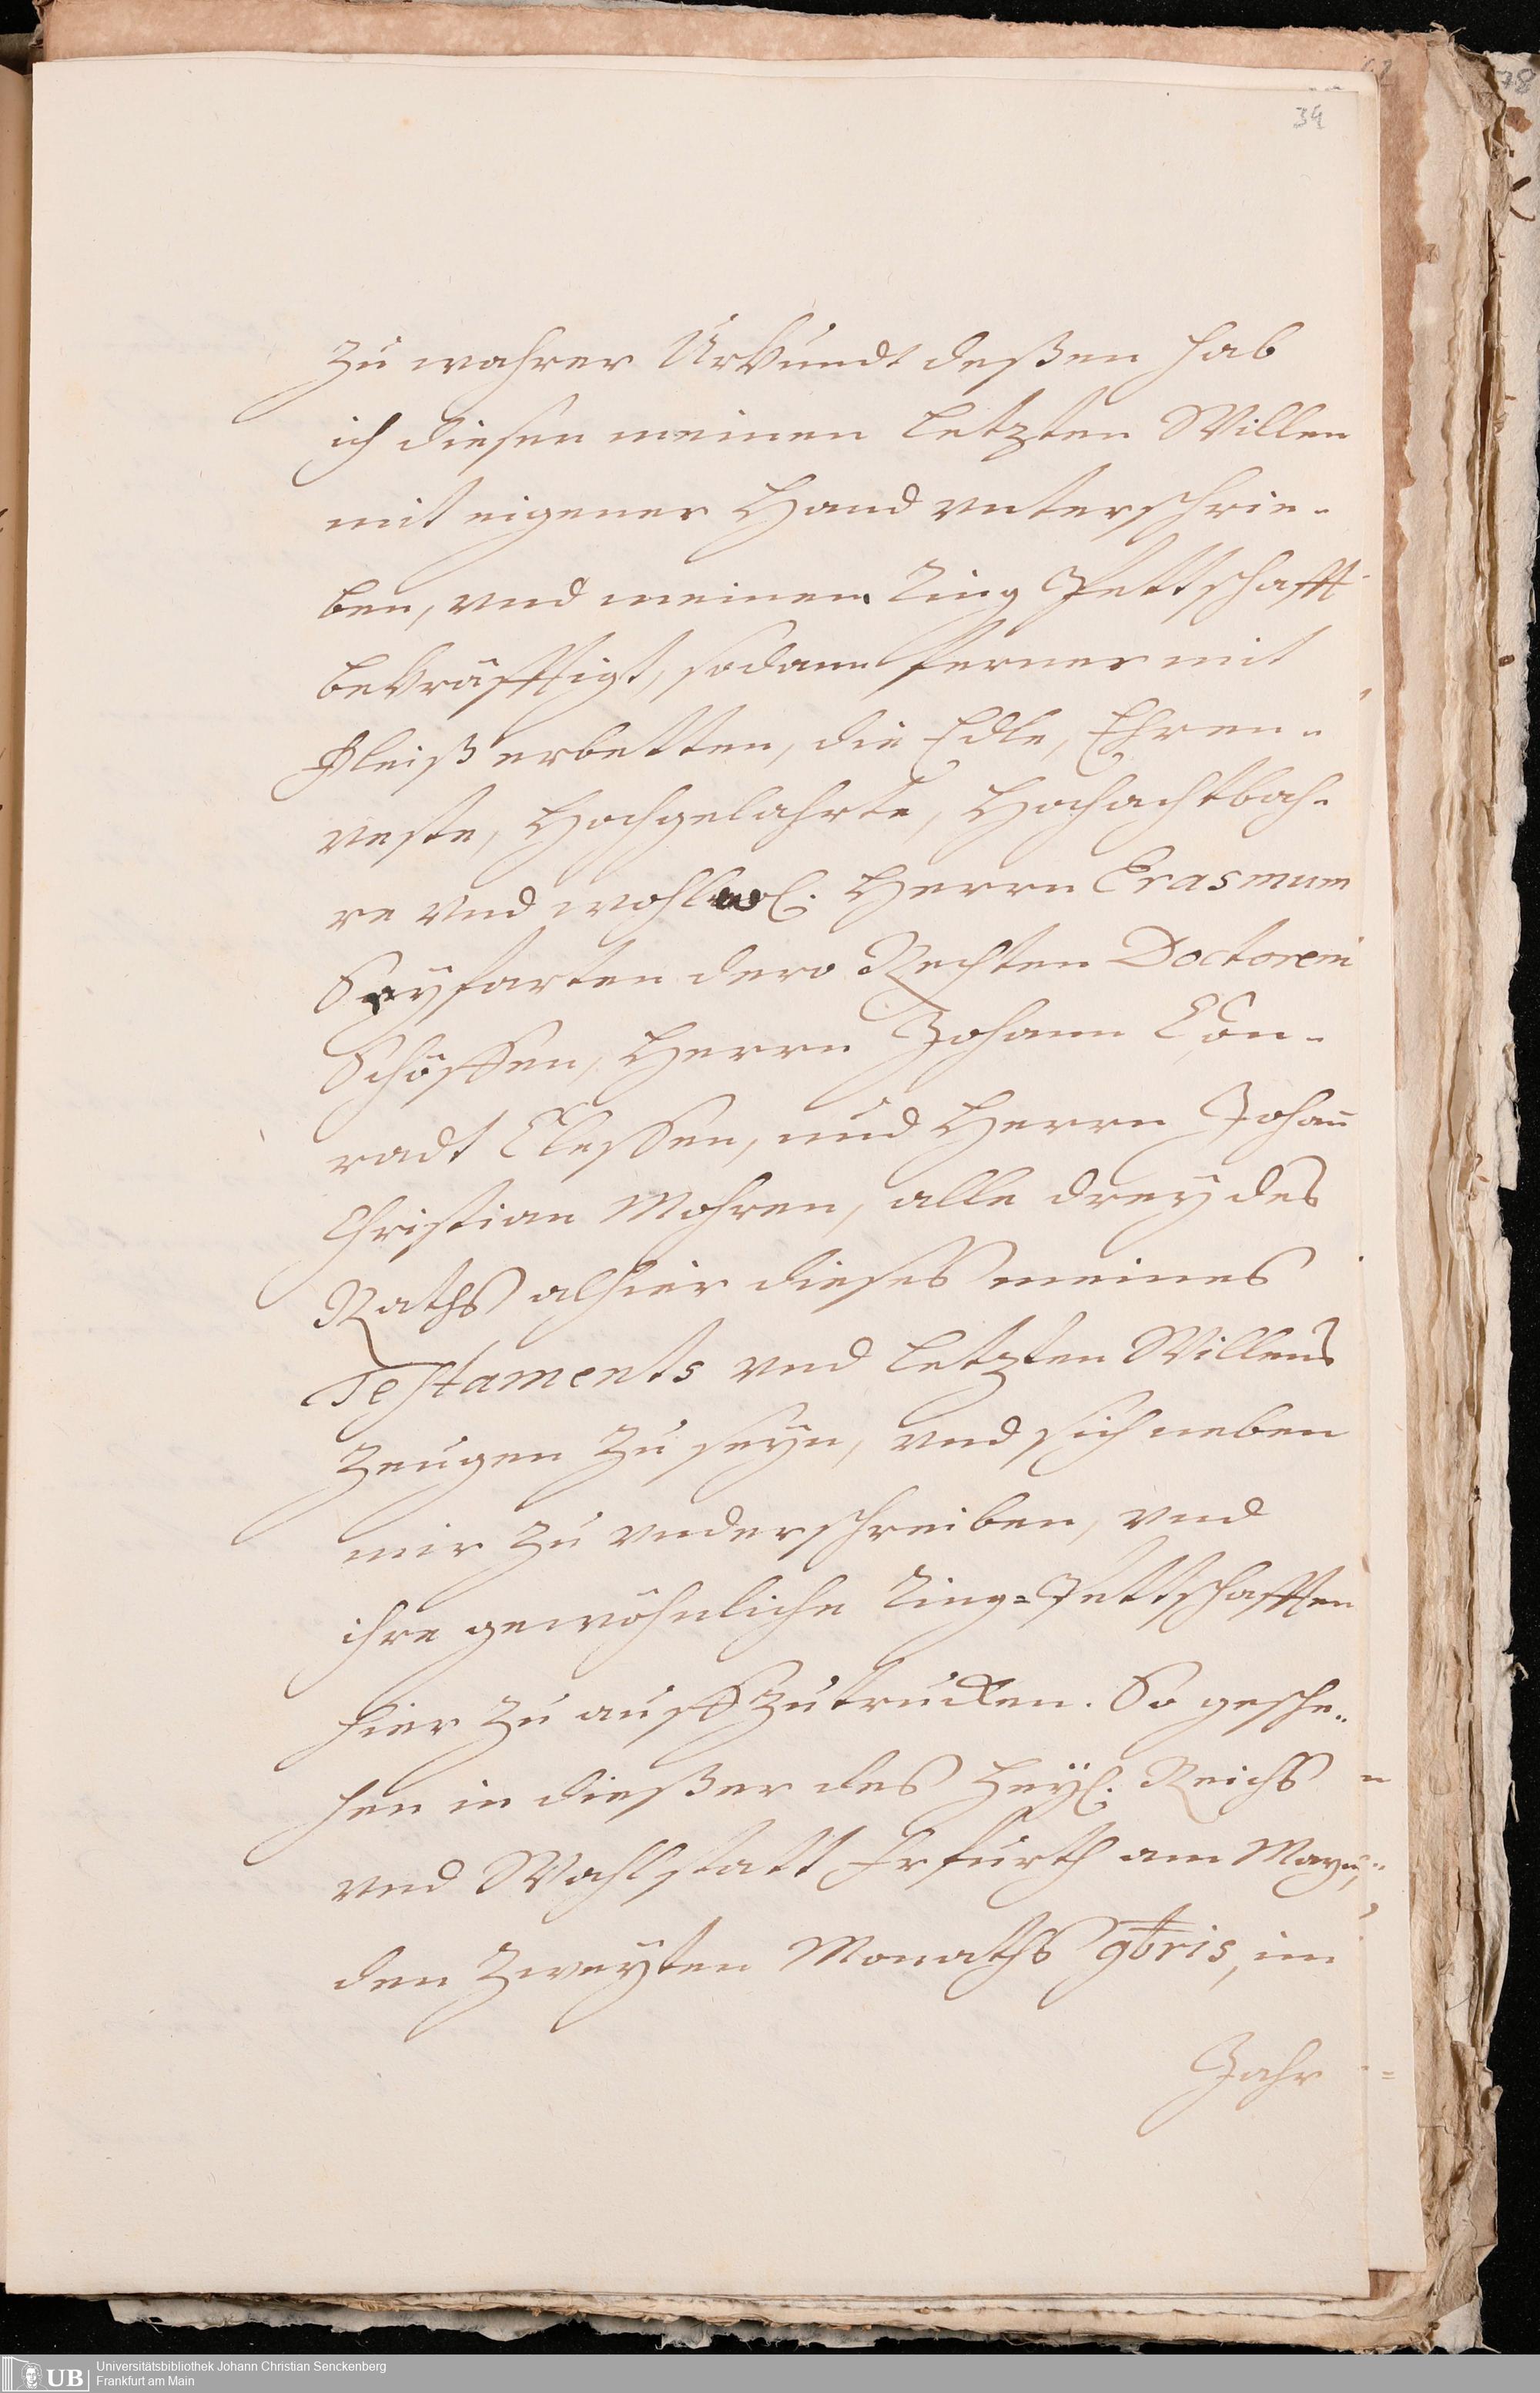 34
zu wahrer Urkundt deßen hab
ich diesen meinen letzten Willen
mit eigener Hand vnterschrie-
ben, vnd meinem Ring Pettschafft
bekräfftigt, sodann ferner mit
Fleiß erbetten, die Edle, Ehren-
veste, Hochgelahrte, Hochachtbah-
re vnd Herrn Erasmum
Seyfarten dero Rechten Doctorem
Schöffen, Herrn Johann Con-
radt Clessen, und Herrn Johann
Christian Mohren, alle drey des
Raths alhier dieses meines
Testaments vnd letzten Willens
Zeugen zu seyn, vnd sich neben
mir zu vnderschreiben, vnd
ihre gewöhnliche Ring=Pettschafften
hier zu auffzutrucken. So gesche-
hen in dießer des Heyl. Reichs
vnd Wahlstatt Frfurth am Mayn,
den Zweyten Monaths 9bris, im
Jahr
UB
Universitätsbibliothek Johann Christian Senckenberg
Frankfurt am Main